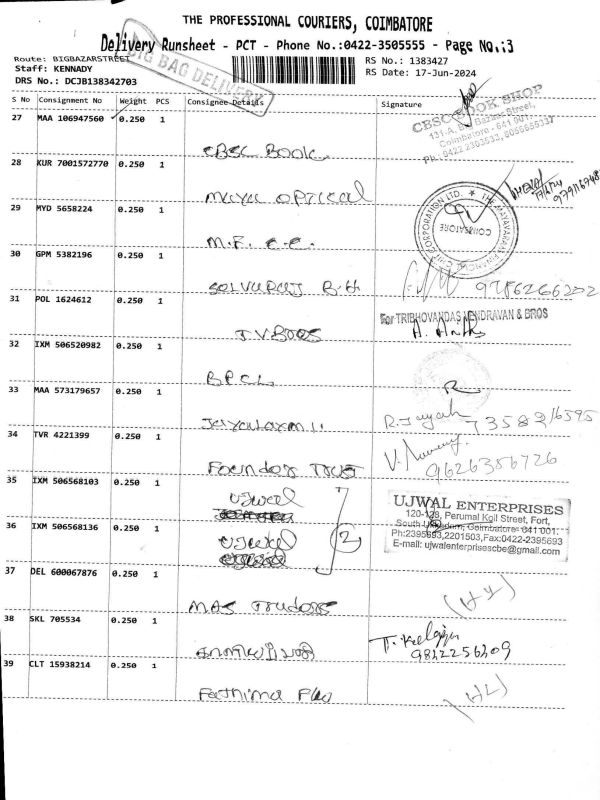 THE PROFESSIONAL COURIERS, COIMBATORE
Delivery Runsheet - PCT - Phone No.:0422-3505555 - Page No.:3
BIG BAG DELIVERY
Route: BIGBAZARSTREET
Staff: KENNADY
DRS No.: DCJB138342703
RS No.: 1383427
RS Date: 17-Jun-2024
S No Consignment No Weight PCS Consignee Details Signature
27 MAA 106947560 0.250 1
CBSC Book
CBSC BOOK SHOP
28 KUR 7001572770 0.250 1
maya optical
29 MYD 5658224 0.250 1
M.F. C.C.
COIMBATORE
30 GPM 5382196 0.250 1
Selvaraj B.H
9786266202
31 POL 1624612 0.250 1
J.V Bros
For TRIBHOVANDAS VENDRAVAN & BROS
32 IXM 506520982 0.250 1
BPCL
33 MAA 573179657 0.250 1
Jayalaxmi
R. Jayah
34 TVR 4221399 0.250 1
Founder Trust
9626356726
35 IXM 506568103 0.250 1
Ujwal
36 IXM 506568136 0.250 1
Ujwal
2
UJWAL ENTERPRISES
120-128, Perumal Koil Street, Fort,
South Ukkadam, Coimbatore- 641 001.
Ph:2395693,2201503,Fax:0422-2395693
E-mail: ujwalenterprisescbe@gmail.com
37 DEL 600067876 0.250 1
MAS Traders
38 SKL 705534 0.250 1
39 CLT 15938214 0.250 1
Fathima